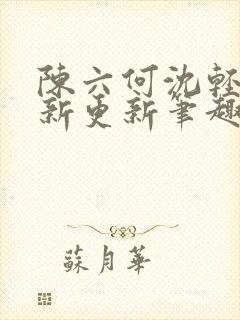 陳六何沈輕
新更新筆趣
蘇月華